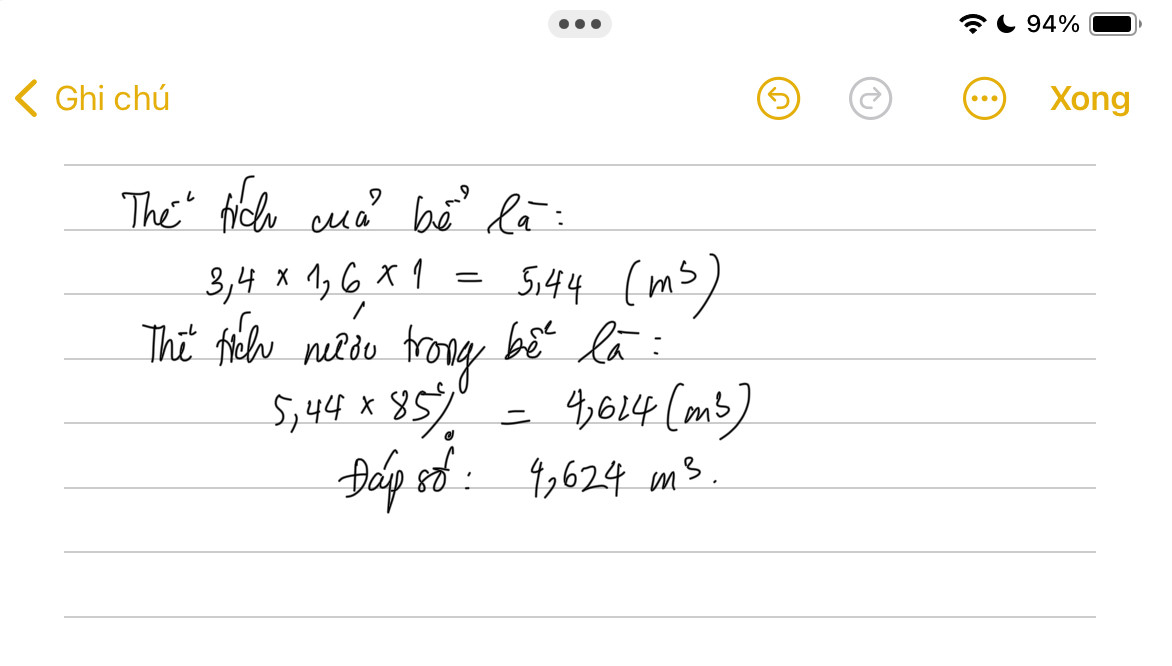 94%
Ghi chú
Xong
Thể tích của bể là:
3,4 × 1,6 × 1 = 5,44 (m³)
Thể tích nước trong bể là:
5,44 × 85% = 4,624 (m³)
Đáp số: 4,624 m³.